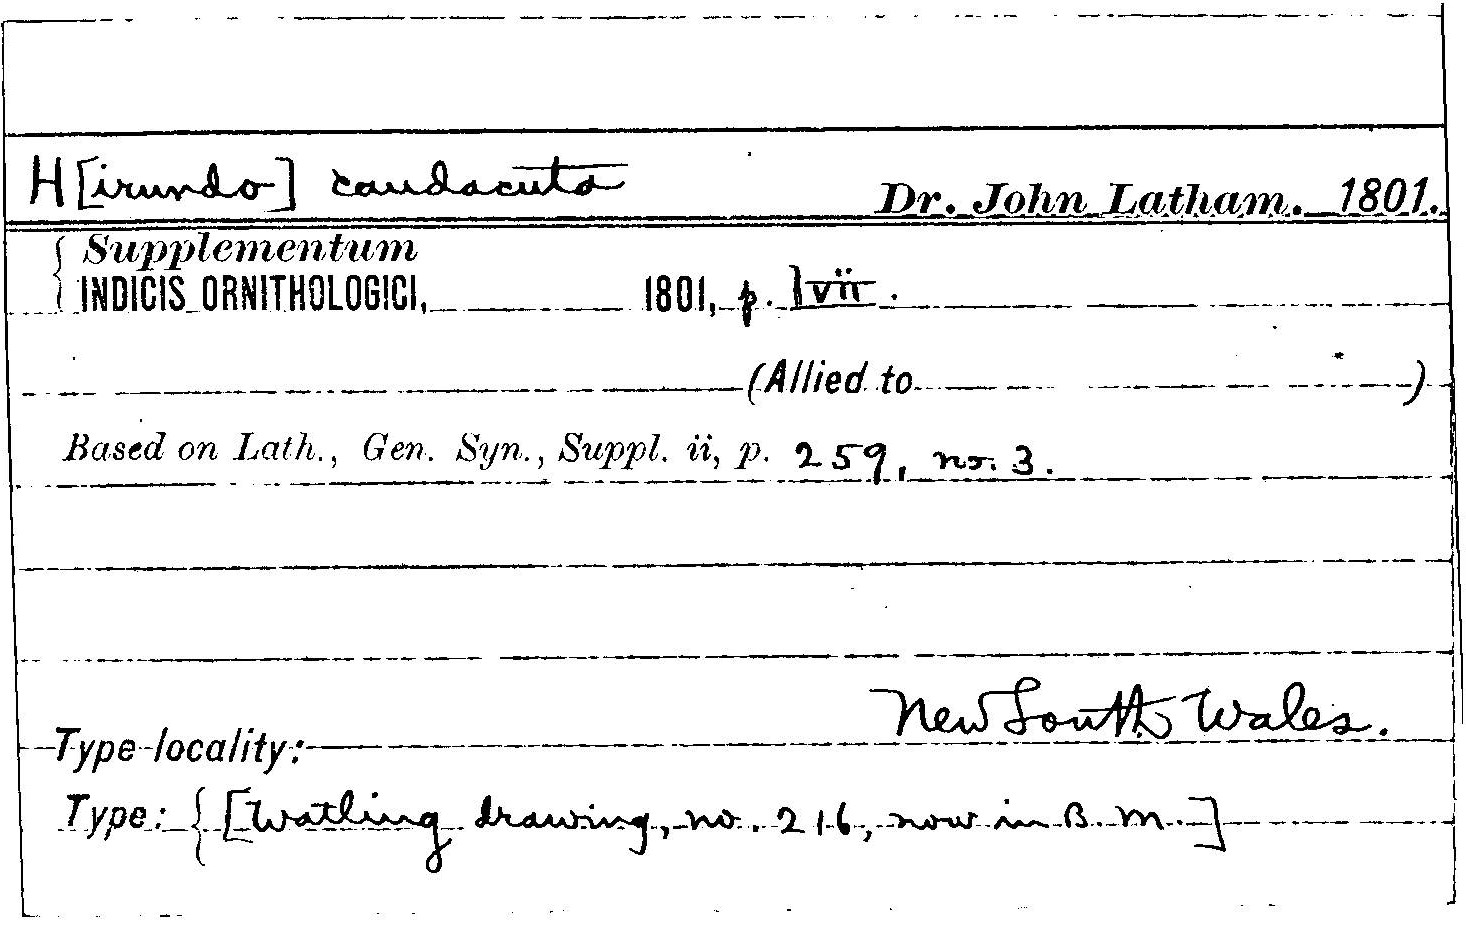 H[irundo] caudacuta Dr. John Latham. 1801.
Supplementum
INDICIS ORNITHOLOGICI, 1801, p. lvii.
(Allied to )
Based on Lath., Gen. Syn., Suppl. ii, p. 259, no. 3.
New South Wales.
Type locality:
Type: { [Watling drawing, no. 216, now in B. M.]